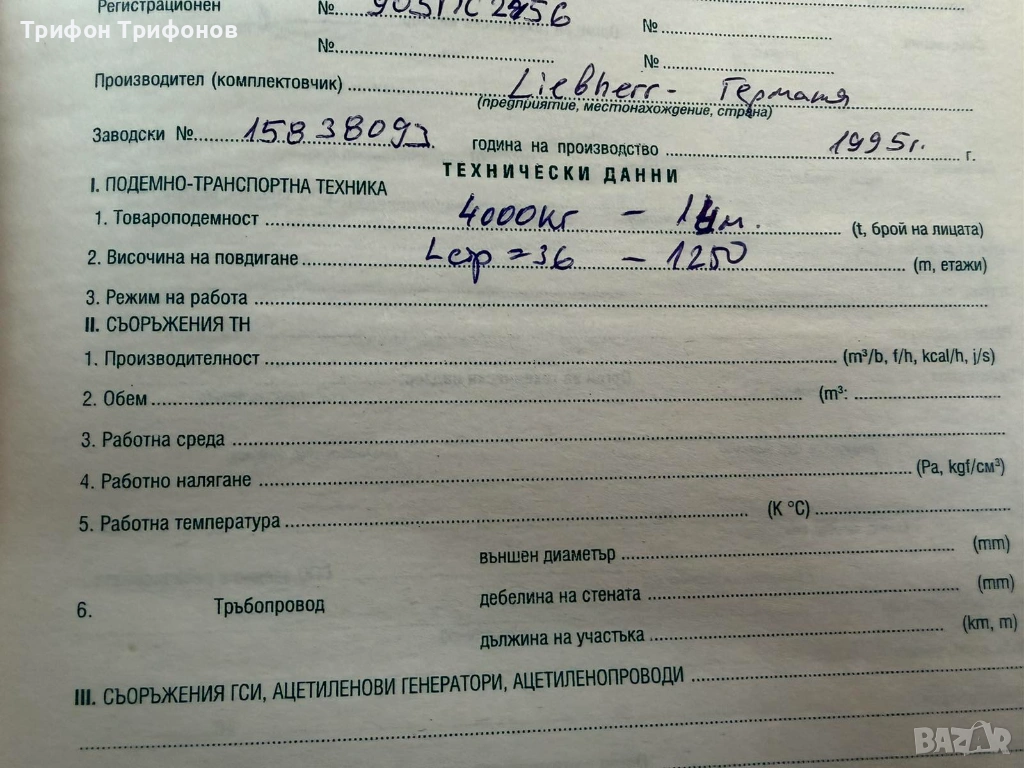 Регистрационен № 903ПС2456 №
Трифон Трифонов
№ №
Производител (комплектовчик) Liebherr - Германия
(предприятие, местонахождение, страна)
Заводски № 15838093 година на производство 1995г. г.
ТЕХНИЧЕСКИ ДАННИ
I. ПОДЕМНО-ТРАНСПОРТНА ТЕХНИКА
1. Товароподемност 4000кг - 14м. (t, брой на лицата)
2. Височина на повдигане Lстр = 36 - 1250 (m, етажи)
3. Режим на работа
II. СЪОРЪЖЕНИЯ ТН
1. Производителност (m³/b, f/h, kcal/h, j/s)
2. Обем (m³:
3. Работна среда
4. Работно налягане (Pa, kgf/см³)
5. Работна температура (K °C)
външен диаметър (mm)
6. Тръбопровод дебелина на стената (mm)
дължина на участъка (km, m)
III. СЪОРЪЖЕНИЯ ГСИ, АЦЕТИЛЕНОВИ ГЕНЕРАТОРИ, АЦЕТИЛЕНОПРОВОДИ
BAZAR